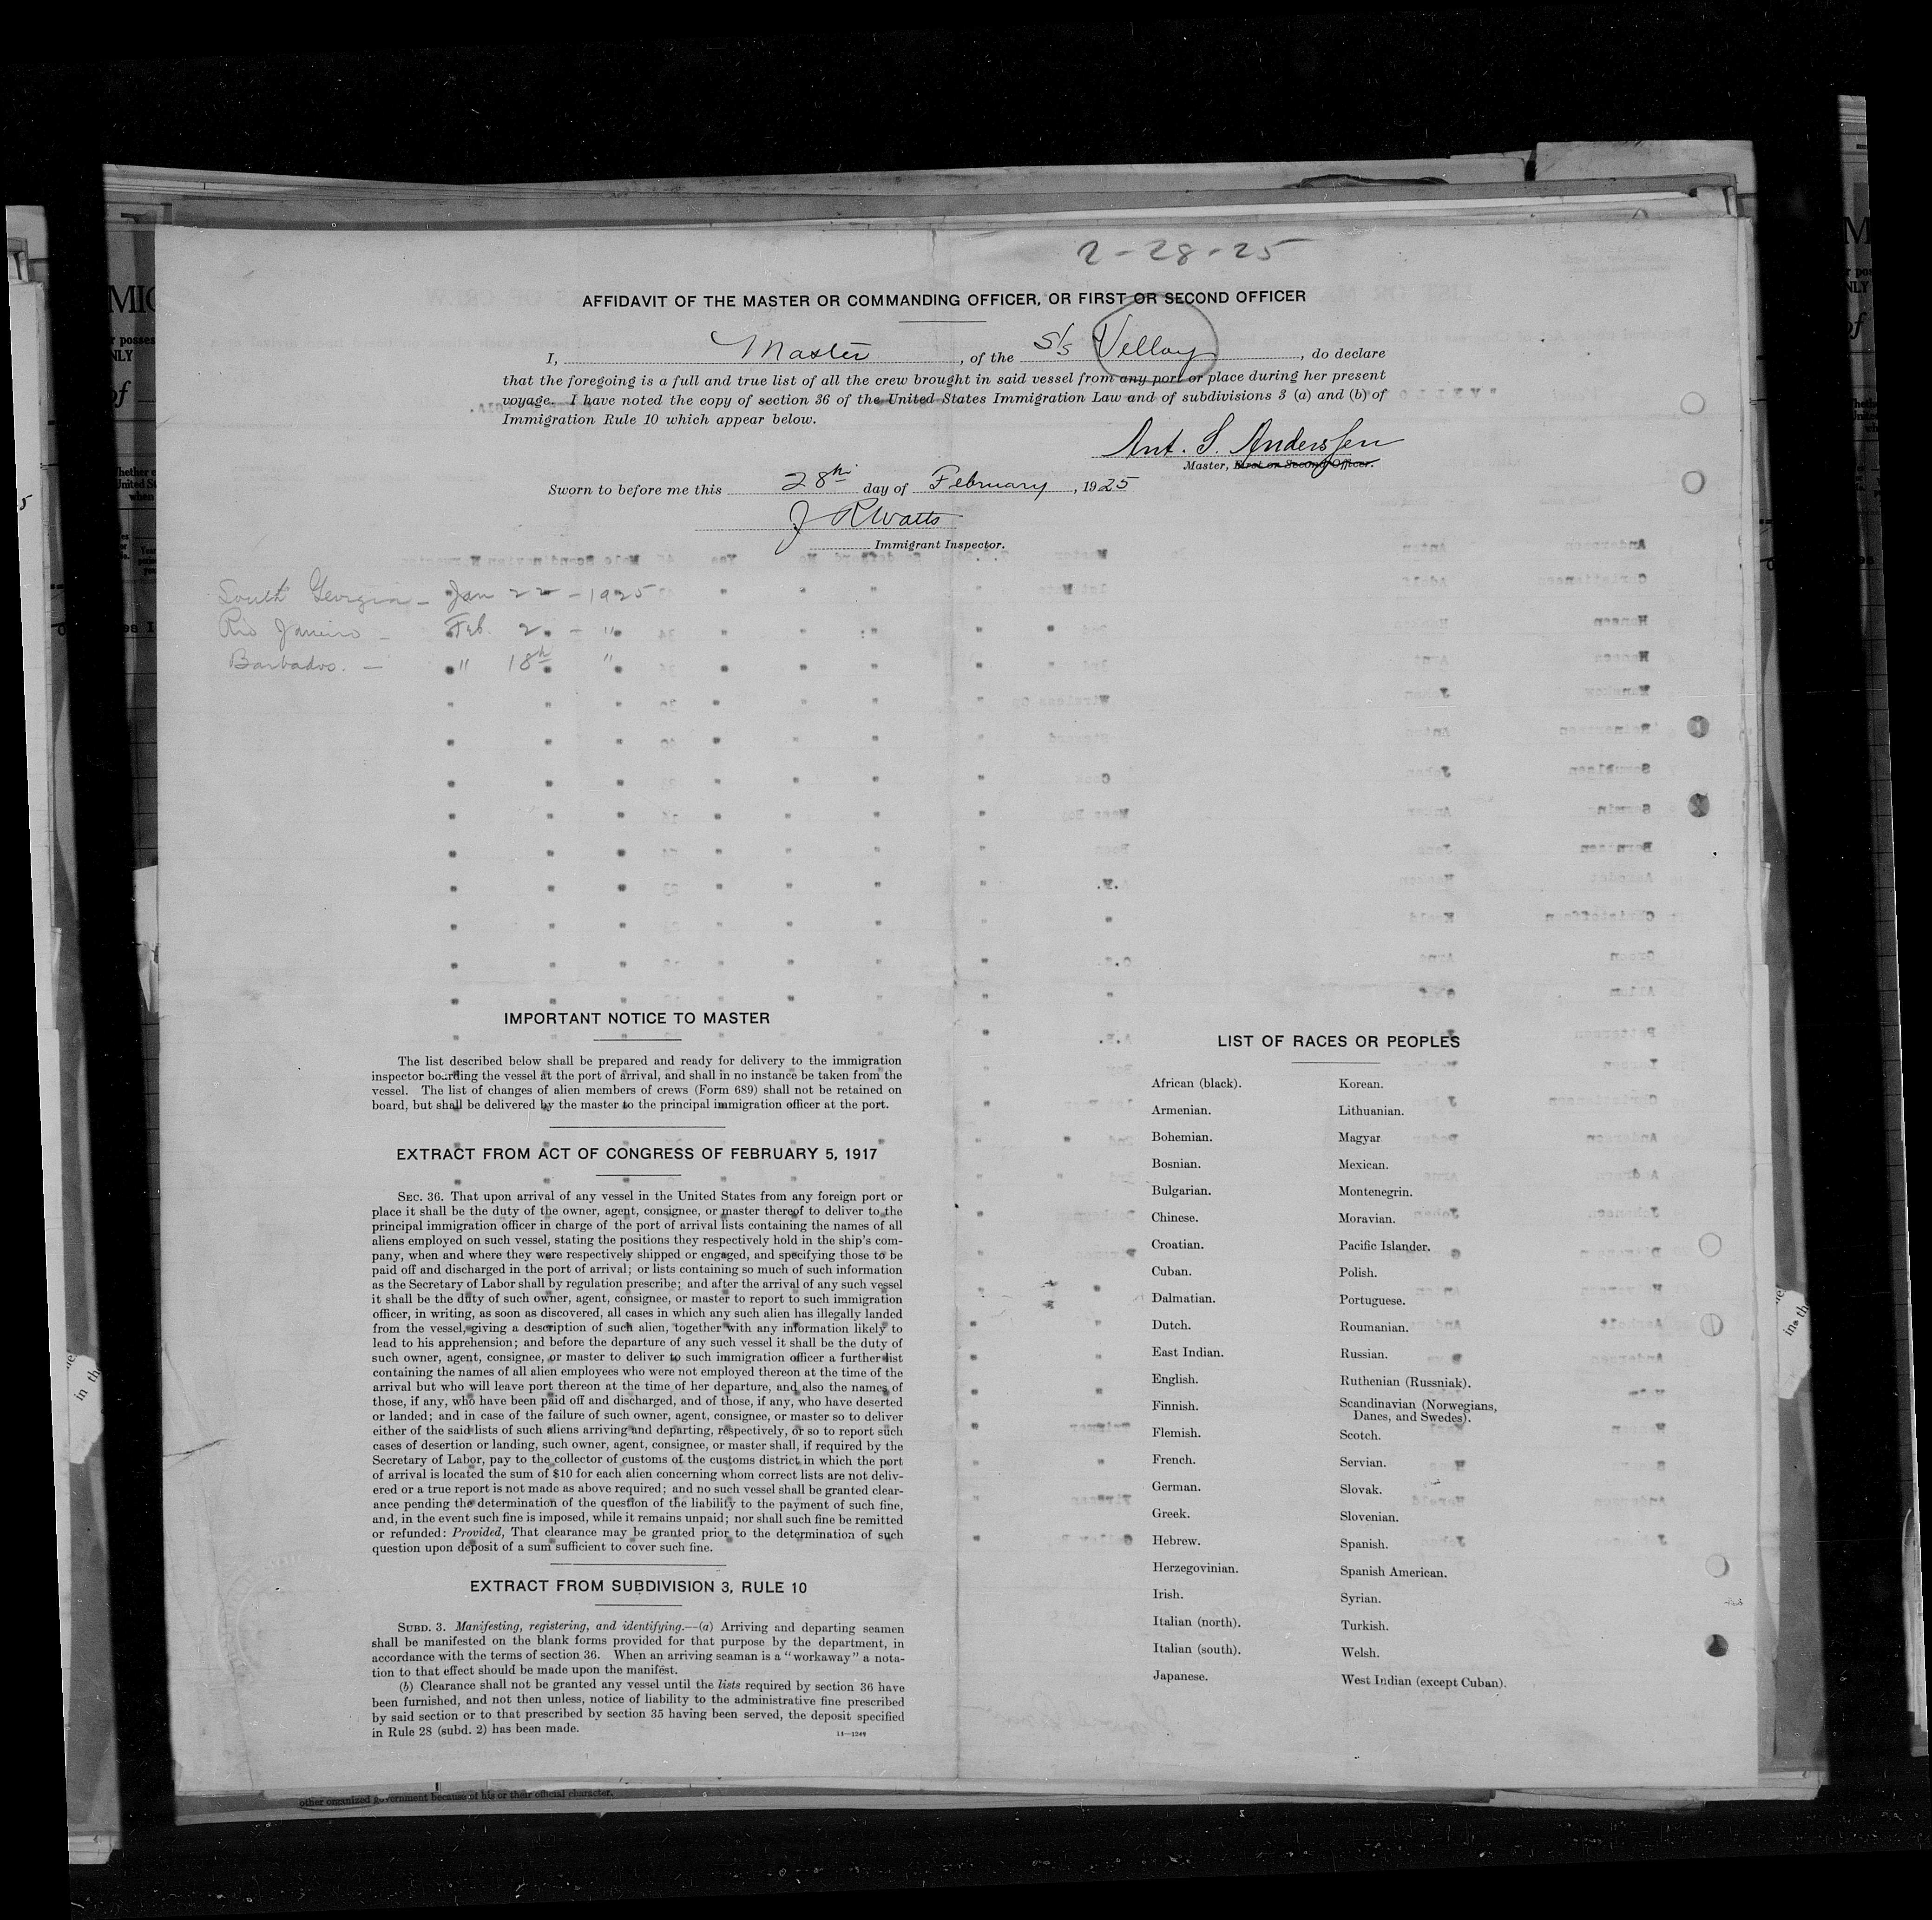 2-28-25
AFFIDAVIT OF THE MASTER OR COMMANDING OFFICER, OR FIRST OR SECOND OFFICER
I, Master, of the S/S Velloy, do declare
that the foregoing is a full and true list of all the crew brought in said vessel from any port or place during her present
voyage. I have noted the copy of section 36 of the United States Immigration Law and of subdivisions 3 (a) and (b) of
Immigration Rule 10 which appear below.
Ant. S. Anderssen
Master, First or Second Officer.
Sworn to before me this 28th day of February, 1925
J R Watts
Immigrant Inspector.
South Georgia - Jan 22 - 1925
Rio Janeiro - Feb. 2. - "
Barbados. - " 18th "
IMPORTANT NOTICE TO MASTER
The list described below shall be prepared and ready for delivery to the immigration
inspector boarding the vessel at the port of arrival, and shall in no instance be taken from the
vessel. The list of changes of alien members of crews (Form 689) shall not be retained on
board, but shall be delivered by the master to the principal immigration officer at the port.
EXTRACT FROM ACT OF CONGRESS OF FEBRUARY 5, 1917
SEC. 36. That upon arrival of any vessel in the United States from any foreign port or
place it shall be the duty of the owner, agent, consignee, or master thereof to deliver to the
principal immigration officer in charge of the port of arrival lists containing the names of all
aliens employed on such vessel, stating the positions they respectively hold in the ship's com-
pany, when and where they were respectively shipped or engaged, and specifying those to be
paid off and discharged in the port of arrival; or lists containing so much of such information
as the Secretary of Labor shall by regulation prescribe; and after the arrival of any such vessel
it shall be the duty of such owner, agent, consignee, or master to report to such immigration
officer, in writing, as soon as discovered, all cases in which any such alien has illegally landed
from the vessel, giving a description of such alien, together with any information likely to
lead to his apprehension; and before the departure of any such vessel it shall be the duty of
such owner, agent, consignee, or master to deliver to such immigration officer a further list
containing the names of all alien employees who were not employed thereon at the time of the
arrival but who will leave port thereon at the time of her departure, and also the names of
those, if any, who have been paid off and discharged, and of those, if any, who have deserted
or landed; and in case of the failure of such owner, agent, consignee, or master so to deliver
either of the said lists of such aliens arriving and departing, respectively, or so to report such
cases of desertion or landing, such owner, agent, consignee, or master shall, if required by the
Secretary of Labor, pay to the collector of customs of the customs district in which the port
of arrival is located the sum of $10 for each alien concerning whom correct lists are not deliv-
ered or a true report is not made as above required; and no such vessel shall be granted clear-
ance pending the determination of the question of the liability to the payment of such fine,
and, in the event such fine is imposed, while it remains unpaid; nor shall such fine be remitted
or refunded: Provided, That clearance may be granted prior to the determination of such
question upon deposit of a sum sufficient to cover such fine.
EXTRACT FROM SUBDIVISION 3, RULE 10
SUBD. 3. Manifesting, registering, and identifying.—(a) Arriving and departing seamen
shall be manifested on the blank forms provided for that purpose by the department, in
accordance with the terms of section 36. When an arriving seaman is a "workaway" a nota-
tion to that effect should be made upon the manifest.
(b) Clearance shall not be granted any vessel until the lists required by section 36 have
been furnished, and not then unless, notice of liability to the administrative fine prescribed
by said section or to that prescribed by section 35 having been served, the deposit specified
in Rule 28 (subd. 2) has been made.
14—1249
LIST OF RACES OR PEOPLES
African (black).
Armenian.
Bohemian.
Bosnian.
Bulgarian.
Chinese.
Croatian.
Cuban.
Dalmatian.
Dutch.
East Indian.
English.
Finnish.
Flemish.
French.
German.
Greek.
Hebrew.
Herzegovinian.
Irish.
Italian (north).
Italian (south).
Japanese.
Korean.
Lithuanian.
Magyar
Mexican.
Montenegrin.
Moravian.
Pacific Islander.
Polish.
Portuguese.
Roumanian.
Russian.
Ruthenian (Russniak).
Scandinavian (Norwegians,
Danes, and Swedes).
Scotch.
Servian.
Slovak.
Slovenian.
Spanish.
Spanish American.
Syrian.
Turkish.
Welsh.
West Indian (except Cuban).
other organized government because of his or their official character.